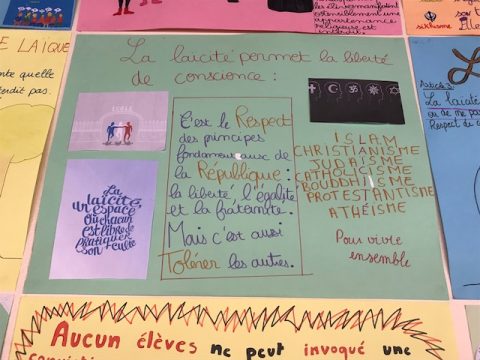 élèves manifestent
ostensiblement une
appartenance
religieuse est
sikhisme
E LAIQUE
nte quelle
terdit pas.
La laïcité permet la liberté
de conscience :
ECOLE
La
laïcité,
un espace
où chacun
est libre de
pratiquer
son culte
C'est le Respect
des principes
fondamentaux de
la République :
la liberté, l'égalité
et la fraternité.
Mais c'est aussi
Tolérer les autres.
ISLAM
CHRISTIANISME
JUDAÏSME
CATHOLICISME
BOUDDHISME
PROTESTANTISME
ATHÉISME
Pour vivre
ensemble
Article 3:
La laïcité
ou de
Respect
L
Aucun élèves ne peut invoqué une